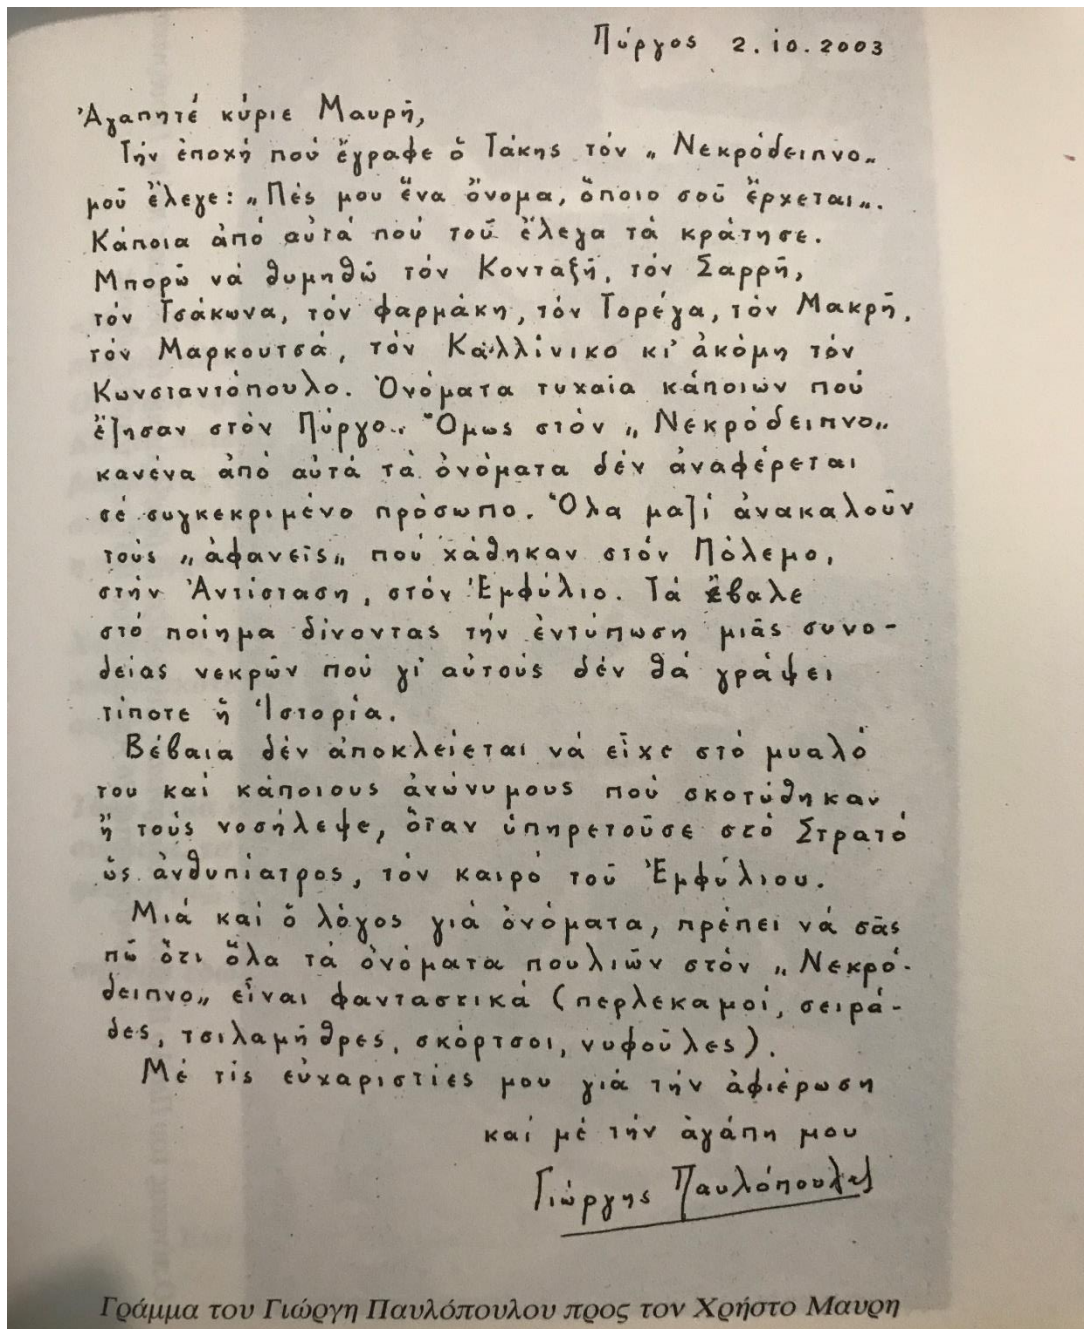 Πύργος 2.10.2003
Ἀγαπητέ κύριε Μαυρῆ,
Τήν ἐποχή πού ἔγραφε ὁ Τάκης τόν „Νεκρόδειπνο„
μοῦ ἔλεγε: „Πές μου ἕνα ὄνομα, ὅποιο σοῦ ἔρχεται„.
Κάποια ἀπό αὐτά πού τοῦ ἔλεγα τά κράτησε.
Μπορῶ νά θυμηθῶ τόν Κονταξῆ, τόν Σαρρῆ,
τόν Τσάκωνα, τόν Φαρμάκη, τόν Τορέγα, τόν Μακρῆ,
τόν Μαρκουτσά, τόν Καλλίνικο κι' ἀκόμη τόν
Κωνσταντόπουλο. Ὀνόματα τυχαία κάποιων πού
ἔζησαν στόν Πύργο. Ὅμως στόν „Νεκρόδειπνο„
κανένα ἀπό αὐτά τά ὀνόματα δέν ἀναφέρεται
σέ συγκεκριμένο πρόσωπο. Ὅλα μαζί ἀνακαλοῦν
τούς „ἀφανεῖς„ πού χάθηκαν στόν Πόλεμο,
στήν Ἀντίσταση, στόν Ἐμφύλιο. Τά ἔβαλε
στό ποίημα δίνοντας τήν ἐντύπωση μιᾶς συνο-
δείας νεκρῶν πού γι' αὐτούς δέν θά γράψει
τίποτε ἡ Ἱστορία.
Βέβαια δέν ἀποκλείεται νά εἶχε στό μυαλό
του καί κάποιους ἀνώνυμους πού σκοτώθηκαν
ἤ τούς νοσήλεψε, ὅταν ὑπηρετοῦσε στό Στρατό
ὡς ἀνθυπίατρος, τόν καιρό τοῦ Ἐμφύλιου.
Μιά καί ὁ λόγος γιά ὀνόματα, πρέπει νά σᾶς
πῶ ὅτι ὅλα τά ὀνόματα πουλιῶν στόν „Νεκρό-
δειπνο„ εἶναι φανταστικά (περλεκαμοί, σειρά-
δες, τσιλαμήθρες, σκόρτσοι, νυφοῦλες).
Μέ τίς εὐχαριστίες μου γιά τήν ἀφιέρωση
καί μέ τήν ἀγάπη μου
Γιώργης Παυλόπουλος
Γράμμα του Γιώργη Παυλόπουλου προς τον Χρήστο Μαυρη